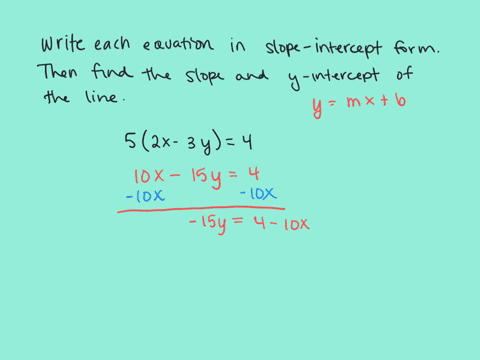 Write each equation in slope-intercept form.
Then find the slope and y-intercept of
the line.
y = mx + b
5(2x - 3y) = 4
10x - 15y = 4
-10x -10x
-15y = 4 - 10x